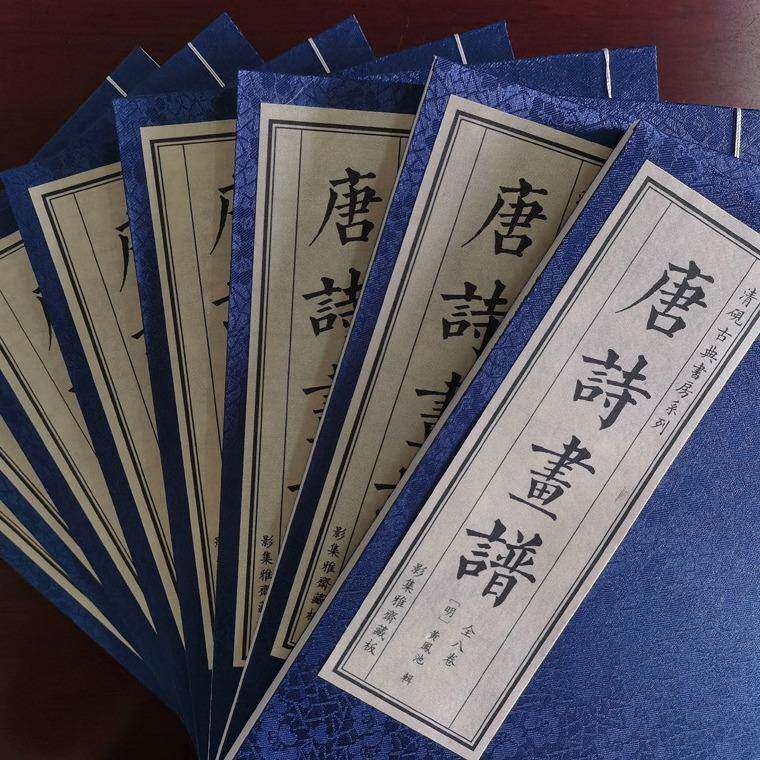 清硯古典書房系列
唐詩畫譜
全八卷
[明] 黃鳳池 輯
影集雅齋藏板
唐詩畫
影集雅齋藏板
唐詩畫
影集雅齋藏